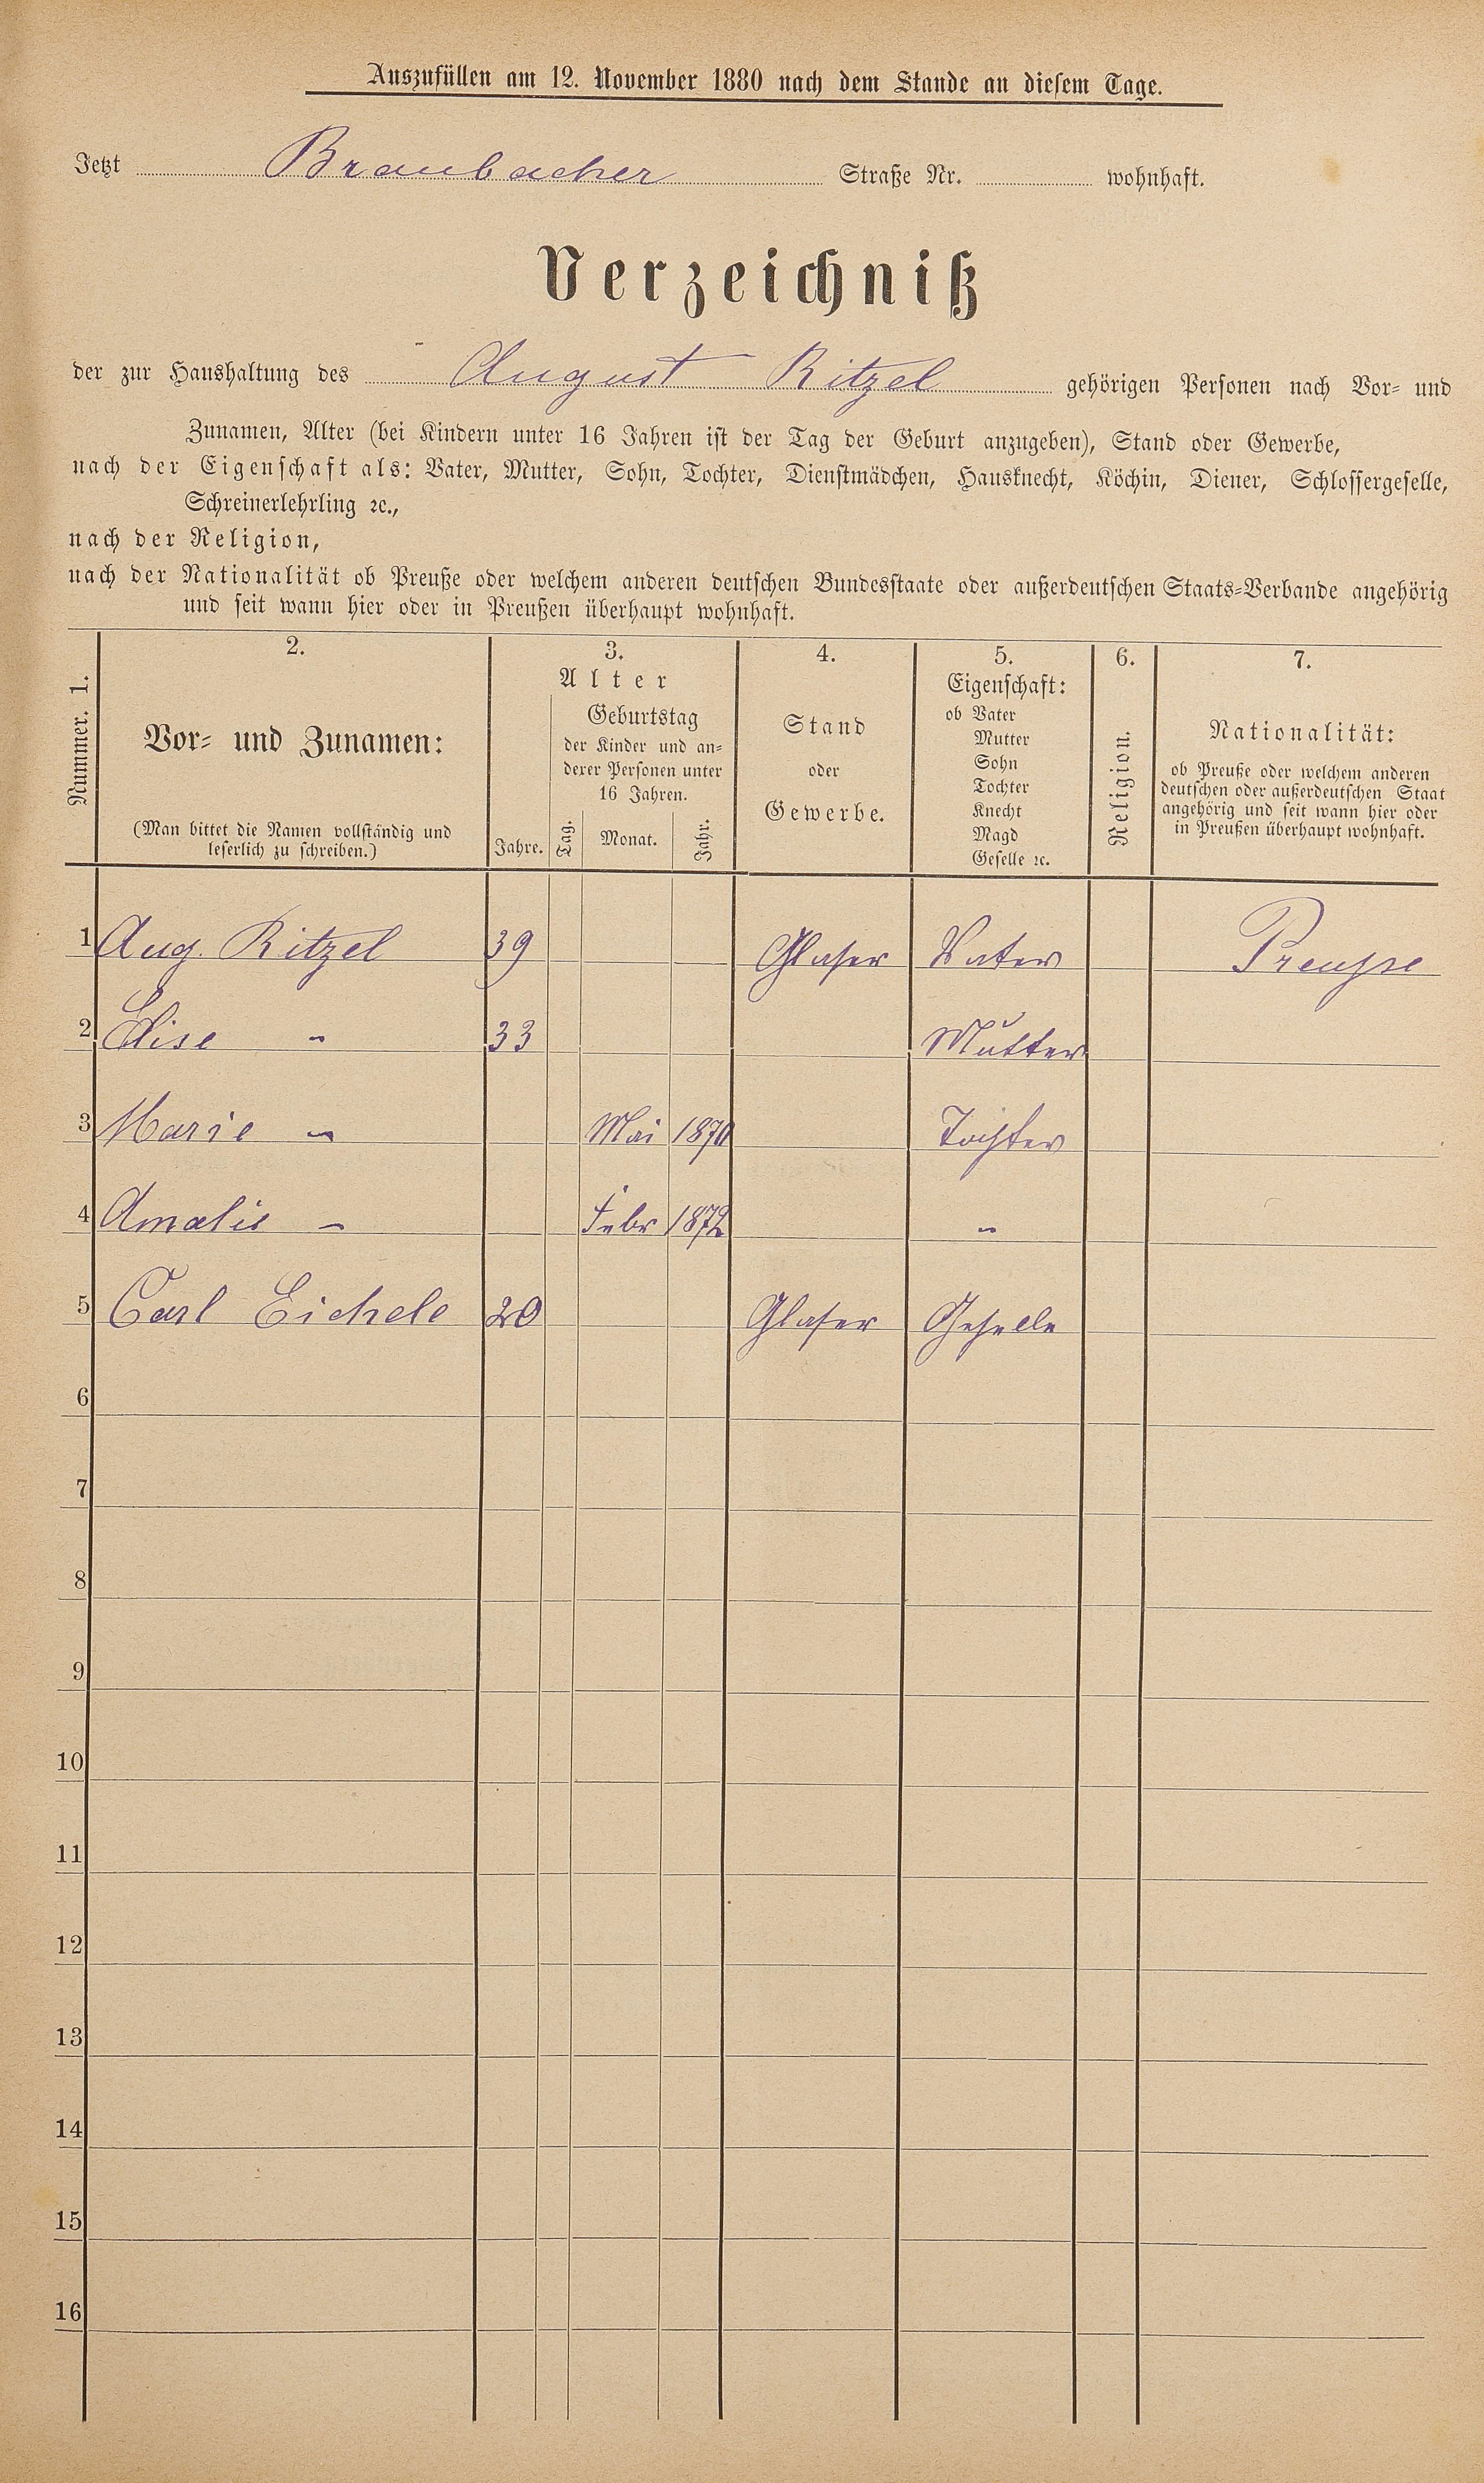 Auszufüllen am 12. November 1880 nach dem Stande an diesem Tage.
Jetzt Braubacher Straße Nr. wohnhaft.
Verzeichniß
der zur Haushaltung des August Ritzel gehörigen Personen nach Vor- und
Zunamen, Alter (bei Kindern unter 16 Jahren ist der Tag der Geburt anzugeben), Stand oder Gewerbe,
nach der Eigenschaft als: Vater, Mutter, Sohn, Tochter, Dienstmädchen, Hausknecht, Köchin, Diener, Schlossergeselle,
Schreinerlehrling ꝛc.,
nach der Religion,
nach der Nationalität ob Preuße oder welchem anderen deutschen Bundesstaate oder außerdeutschen Staats-Verbande angehörig
und seit wann hier oder in Preußen überhaupt wohnhaft.
Nummer. 1.
2.
Vor- und Zunamen:
(Man bittet die Namen vollständig und
leserlich zu schreiben.)
3.
Alter
Jahre.
Geburtstag
der Kinder und an-
derer Personen unter
16 Jahren.
Tag. Monat. Jahr.
4.
Stand
oder
Gewerbe.
5.
Eigenschaft:
ob Vater
Mutter
Sohn
Tochter
Knecht
Magd
Geselle ꝛc.
6.
Religion.
7.
Nationalität:
ob Preuße oder welchem anderen
deutschen oder außerdeutschen Staat
angehörig und seit wann hier oder
in Preußen überhaupt wohnhaft.
1 Aug. Ritzel 39 Glaser Vater Preusse
2 Elise " 33 Mutter
3 Marie " Mai 1870 Tochter
4 Amalie " Febr 1872 "
5 Carl Eichele 20 Glaser Geselle
6
7
8
9
10
11
12
13
14
15
16